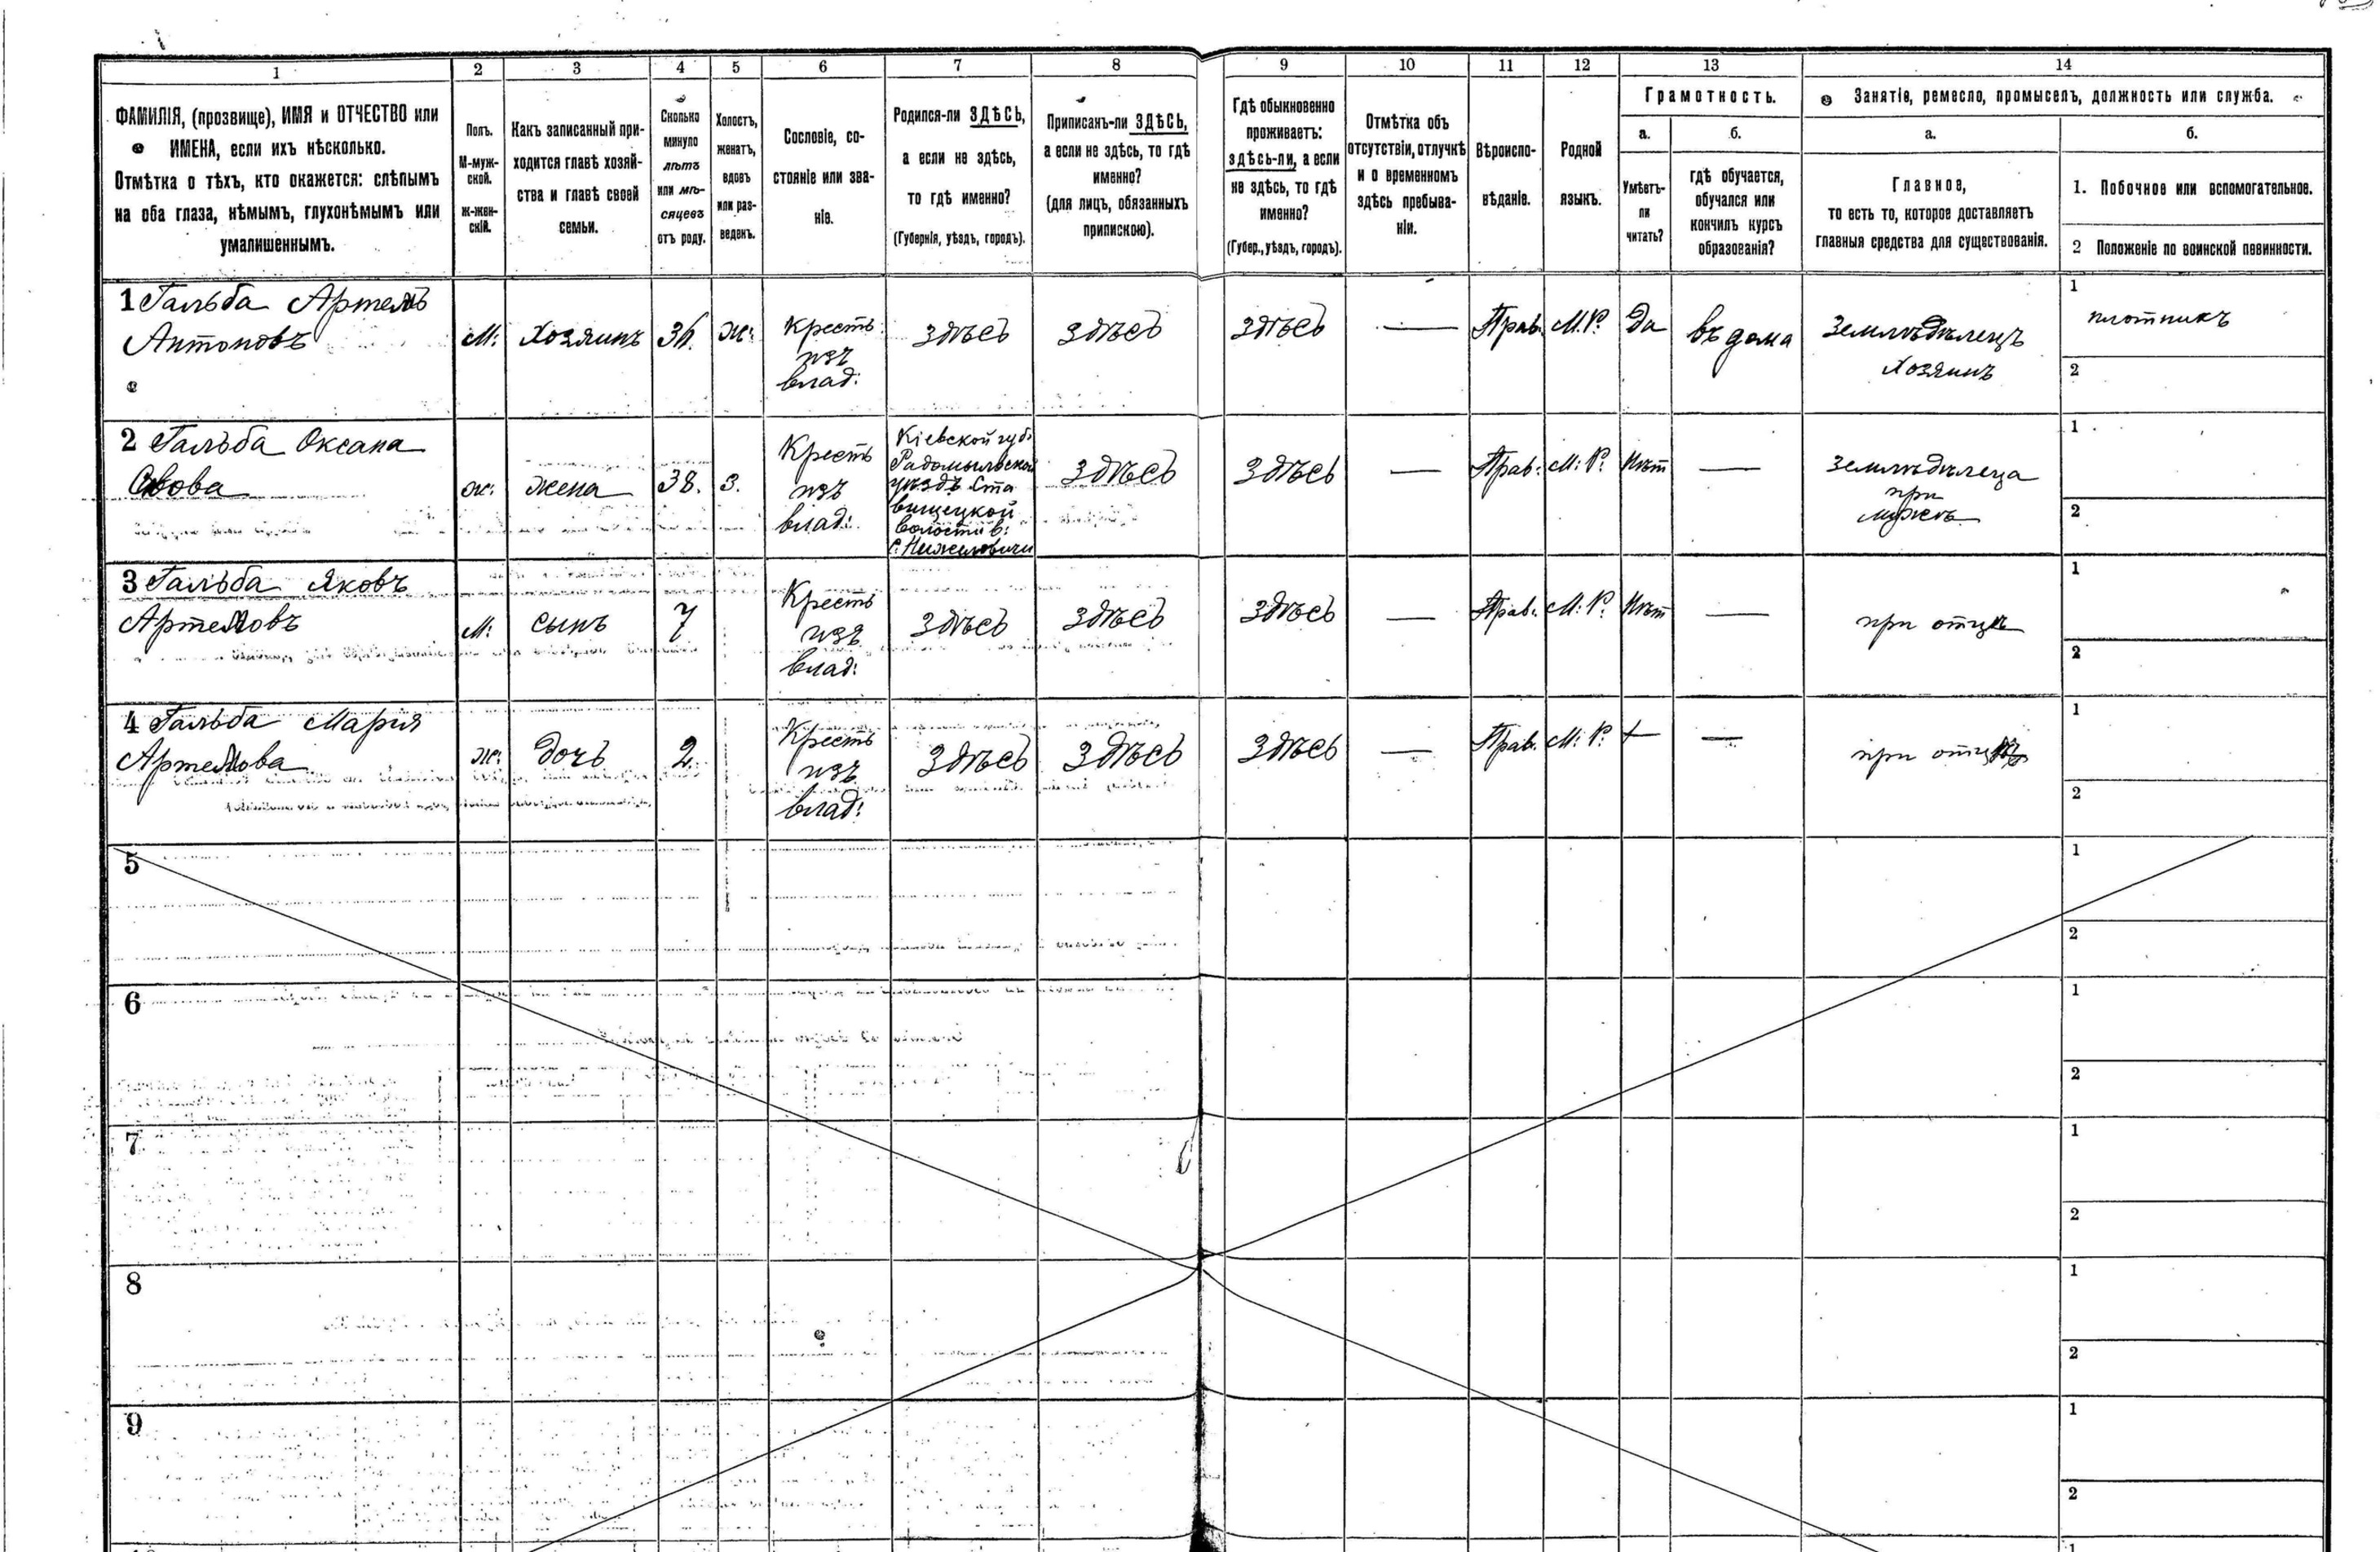 1 2 3 4 5 6 7 8 9 10 11 12 13 14
ФАМИЛІЯ, (прозвище), ИМЯ и ОТЧЕСТВО или
ИМЕНА, если ихъ нѣсколько.
Отмѣтка о тѣхъ, кто окажется: слѣпымъ
на оба глаза, нѣмымъ, глухонѣмымъ или
умалишеннымъ.
Полъ.
М-муж-
ской.
ж-жен-
скій.
Какъ записанный при-
ходится главѣ хозяй-
ства и главѣ своей
семьи.
Сколько
минуло
лѣтъ
или мѣ-
сяцевъ
отъ роду.
Холостъ,
женатъ,
вдовъ
или раз-
веденъ.
Сословіе, со-
стояніе или зва-
ніе.
Родился-ли ЗДѢСЬ,
а если не здѣсь,
то гдѣ именно?
(Губернія, уѣздъ, городъ).
Приписанъ-ли ЗДѢСЬ,
а если не здѣсь, то гдѣ
именно?
(для лицъ, обязанныхъ
припискою).
Гдѣ обыкновенно
проживаетъ:
здѣсь-ли, а если
не здѣсь, то гдѣ
именно?
(Губер., уѣздъ, городъ).
Отмѣтка объ
отсутствіи, отлучкѣ
и о временномъ
здѣсь пребыва-
ніи.
Вѣроиспо-
вѣданіе.
Родной
языкъ.
Грамотность.
а.
Умѣетъ-
ли
читать?
б.
гдѣ обучается,
обучался или
кончилъ курсъ
образованія?
Занятіе, ремесло, промыселъ, должность или служба.
а.
Главное,
то есть то, которое доставляетъ
главныя средства для существованія.
б.
1. Побочное или вспомогательное.
2 Положеніе по воинской повинности.
1 Гальба Артемъ
Антоновъ
М.
Хозяинъ
36
ж.
Крестъ
изъ
влад:
здѣсь
здѣсь
здѣсь
—
Прав.
М.Р.
Да
въ дома
Земледѣлецъ
Хозяинъ
1
плотникъ
2
2 Гальба Оксана
ж.
жена
38.
З.
Крестъ
изъ
влад:
Кіевской губ.
Радомыльской
уѣздъ Ста
вищецкой
волости в:
с. Нижиловичи
здѣсь
здѣсь
—
Прав:
М: Р.
Нѣт
—
Земледѣлеца
при
мужеъ
1
2
3 Гальба Яковъ
Артемовъ
М:
сынъ
7
Крестъ
изъ
влад:
здѣсь
здѣсь
здѣсь
—
Прав.
М: Р.
Нѣт
—
при отцѣ
1
2
4 Гальба Марія
Артемова
ж.
дочь
2
Крестъ
изъ
влад:
здѣсь
здѣсь
здѣсь
—
Прав.
М: Р.
—
при отцѣ
1
2
5
1
2
6
1
2
7
1
2
8
1
2
9
1
2
1